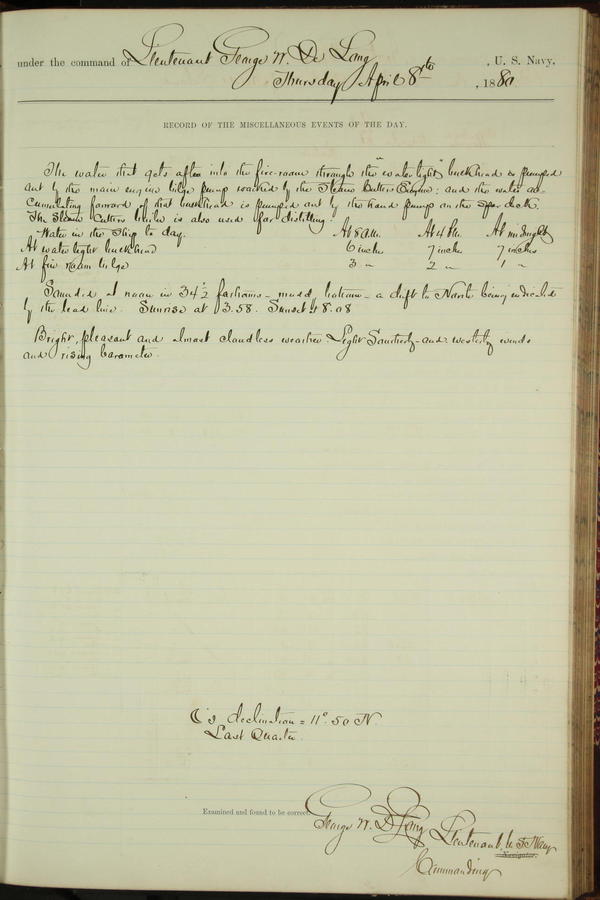 under the command of Lieutenant George W. De Long , U. S. Navy,
Thursday April 8th , 1880
RECORD OF THE MISCELLANEOUS EVENTS OF THE DAY.
The water that gets aften into the fire-room through the "water tight" bulkhead is pumped
out by the main engine bilge pump worked by the Steam Cutters Engine: and the water ac-
cumulating forward of that bulkhead is pumped out by the hand pump on the spar deck.
The Steam Cutters boiler is also used for distilling.
Water in the Ship to day. At 8 a.m. At 4 P.M. At midnight
At water tight bulkhead 6 inches 7 inches 7 inches
At fire room bilge 3 " 2 " 1 "
Sounded at noon in 34½ fathoms - mud bottom - a drift to North being indicated
by the lead line. Sunrise at 3.58. Sunset at 8.08
Bright, pleasant and almost cloudless weather Light Southerly - and westerly winds
and rising barometer.
☾'s declination = 11°. 50 N.
Last Quarter.
Examined and found to be correct.
George W. De Long Lieutenant, U. S. Navy
Navigator.
Commanding